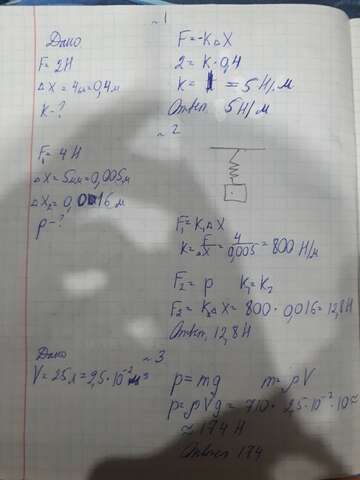 ~1
Дано
F=2H
Δx=4м=0,4м
K-?
F=-KΔX
2=K·0,4
K= = 5H/м
Ответ 5H/м
~2
F₁=4H
Δx=5мм=0,005м
Δx₂=0,016м
p-?
F₁=K₁ΔX
K=F/ΔX=4/0,005=800 H/м
F₂=p K₁=K₂
F₂=K₂ΔX=800·0,016=12,8H
Ответ, 12,8H
~3
Дано
V=25л=2,5·10⁻²м³
p=mg m=ρV
p=ρVg=710·2,5·10⁻²·10≈
≈174H
Ответ 174